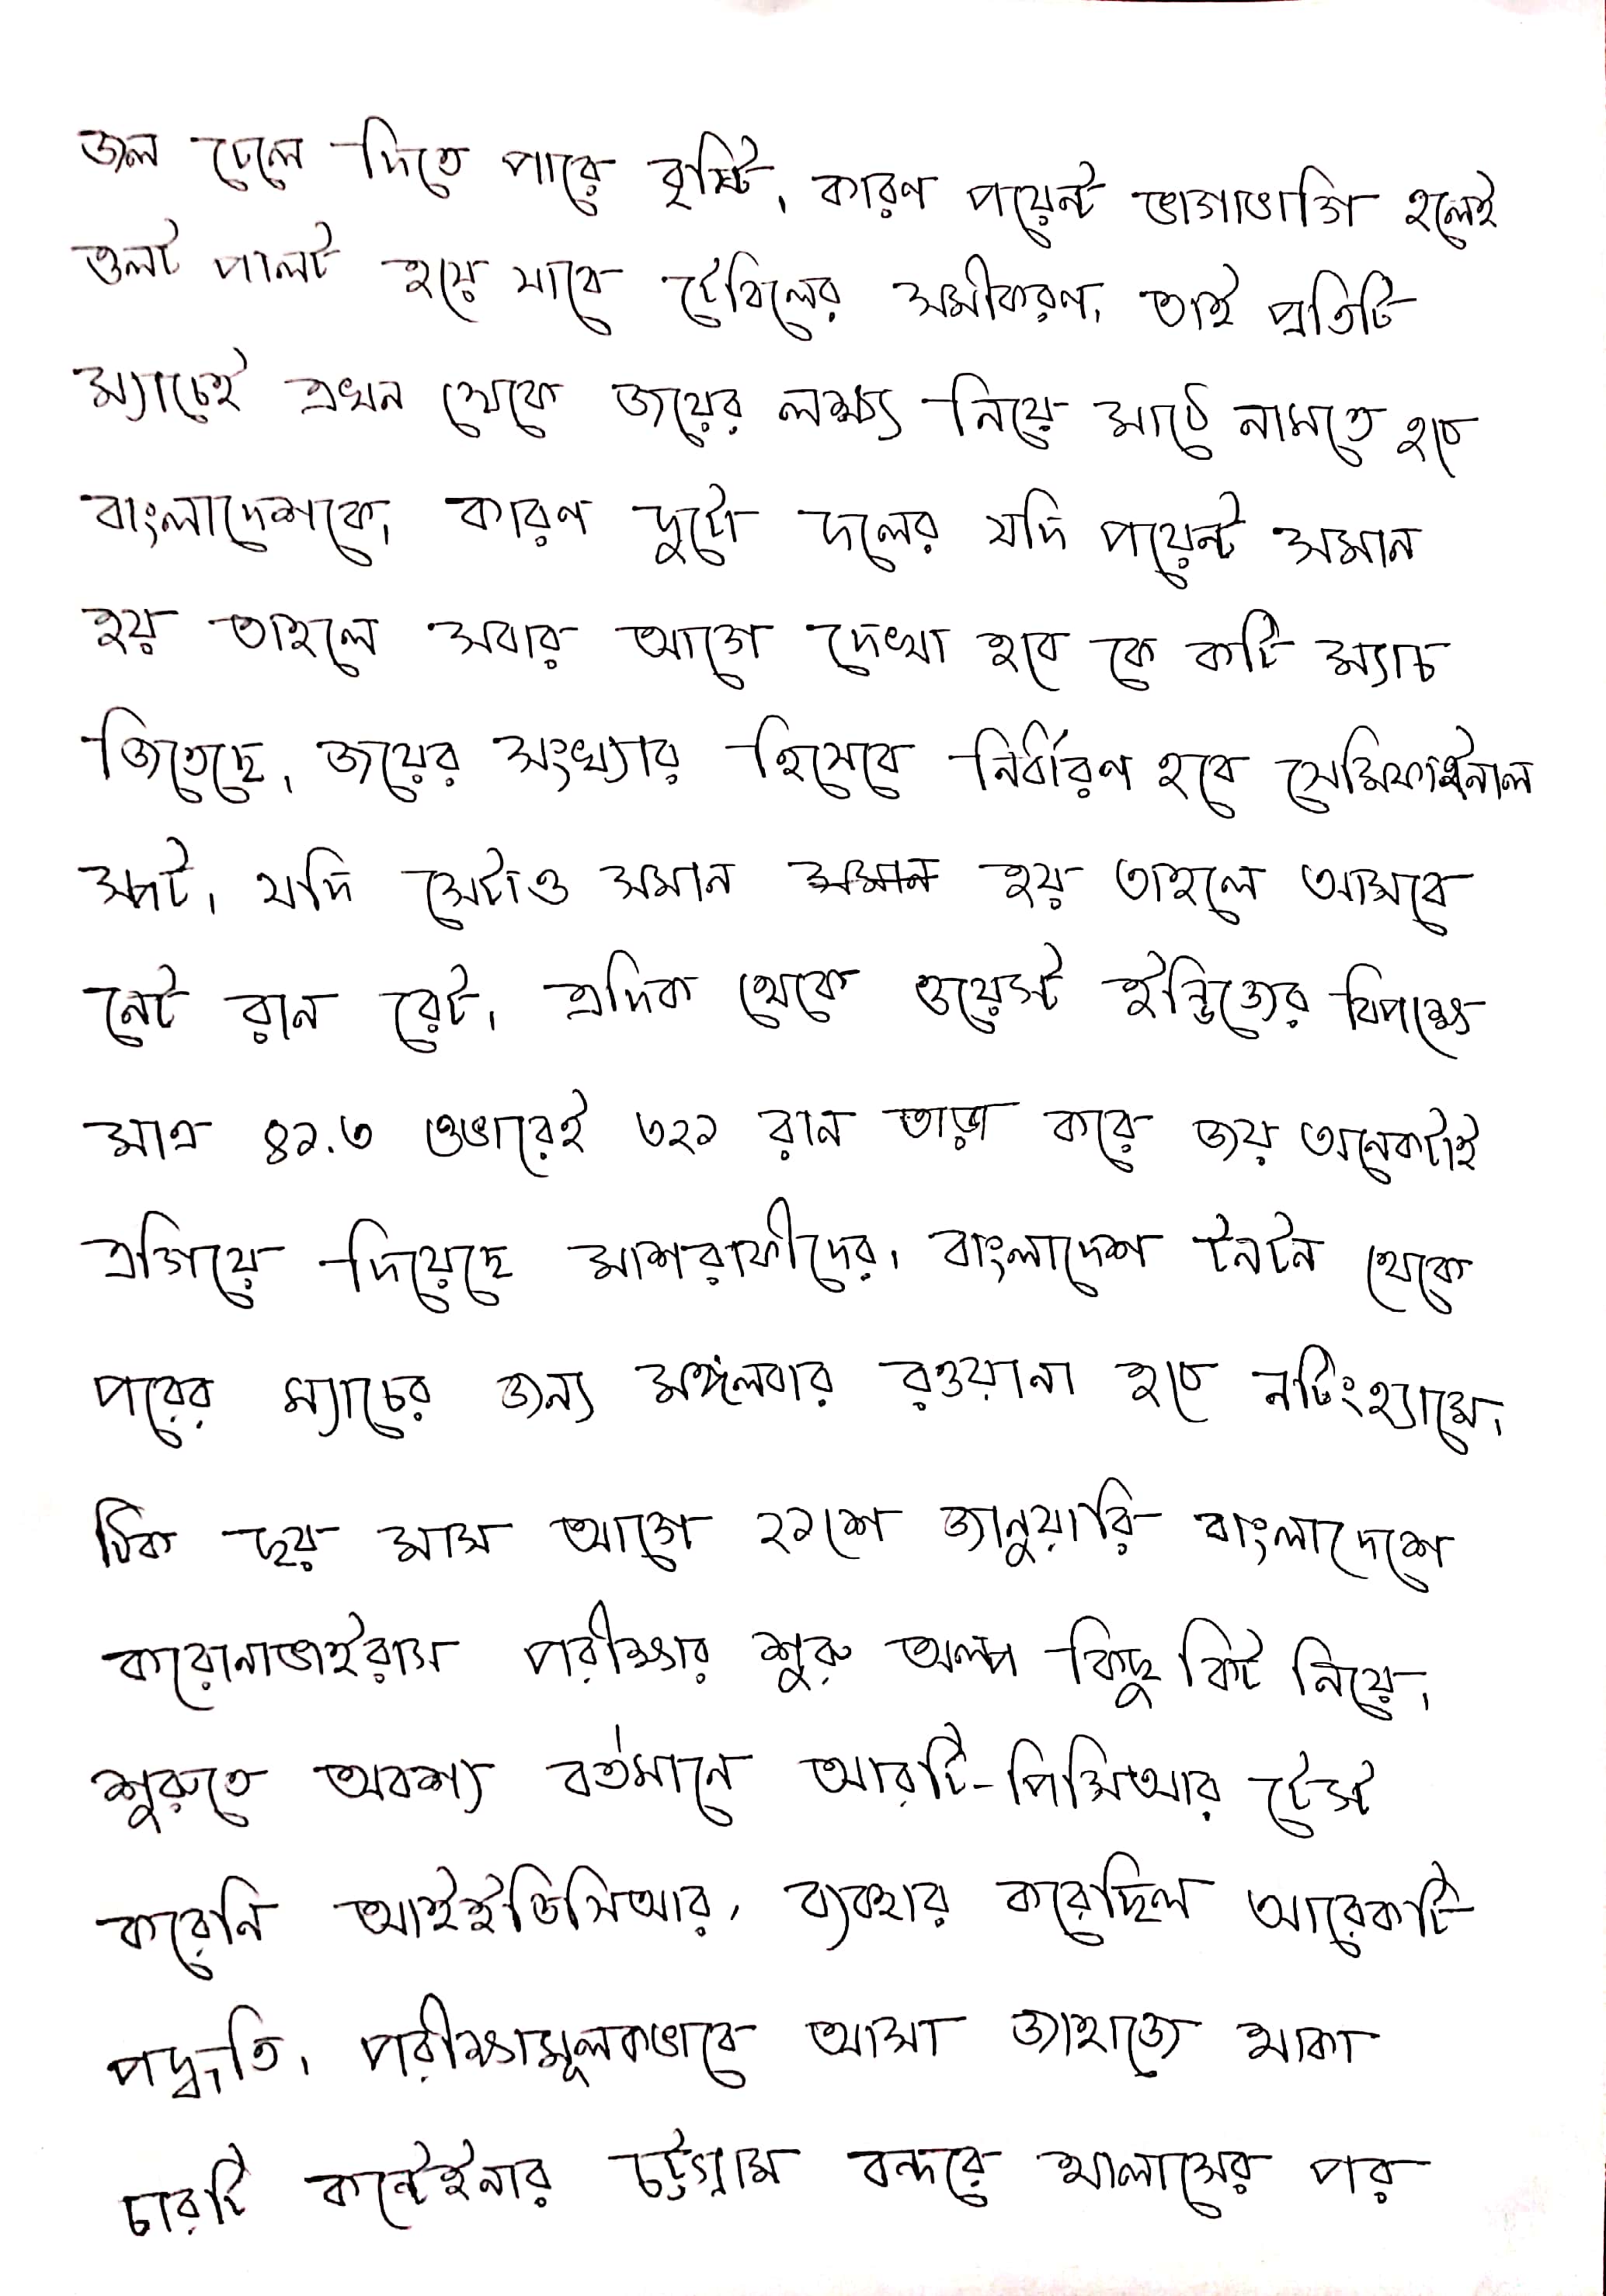 জল ঢেলে দিতে পারে বৃষ্টি। কারণ পয়েন্ট ভাগাভাগি হলেই
ওলট পালট হয়ে যাবে টেবিলের সমীকরণ। তাই প্রতিটি
ম্যাচেই এখন থেকে জয়ের লক্ষ্য নিয়ে মাঠে নামতে হচে
বাংলাদেশকে। কারণ দুটো দলের যদি পয়েন্ট সমান
হয় তাহলে সবার আগে দেখা হবে কে কটি ম্যাচ
জিতেছে। জয়ের সংখ্যার হিসেবে নির্ধারণ হবে সেমিফাইনাল
স্পট। যদি সেটাও সমান সমান হয় তাহলে আসবে
নেট রান রেট। এদিক থেকে ওয়েস্ট ইন্ডিজের বিপক্ষে
মাত্র ৪১.৩ ওভারেই ৩২১ রান তাড়া করে জয় অনেকটাই
এগিয়ে দিয়েছে মাশরাফীদের। বাংলাদেশ টনটন থেকে
পরের ম্যাচের জন্য মঙ্গলবার রওয়ানা হচে নটিংহ্যামে।
ঠিক ছয় মাস আগে ২১শে জানুয়ারি বাংলাদেশে
করোনাভাইরাস পরীক্ষার শুরু অল্প কিছু কিট নিয়ে।
শুরুতে অবশ্য বর্তমানে আরটি-পিসিআর টেস্ট
করেনি আইইডিসিআর, ব্যবহার করেছিল আরেকটি
পদ্ধতি। পরীক্ষামূলকভাবে আসা জাহাজে থাকা
চারটি কন্টেইনার চট্টগ্রাম বন্দরে খালাসের পর